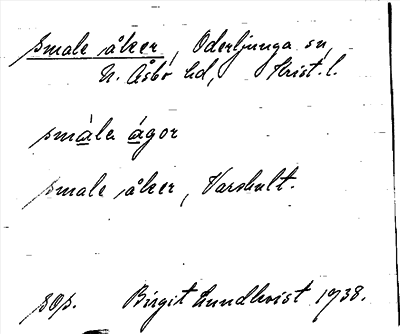 smale åker, Oderljunga sn,
N. Åsbo hd, Krist. l.
småla ågor
smale åker, Varshult.
sop.
Birgit Lundkvist 1938.